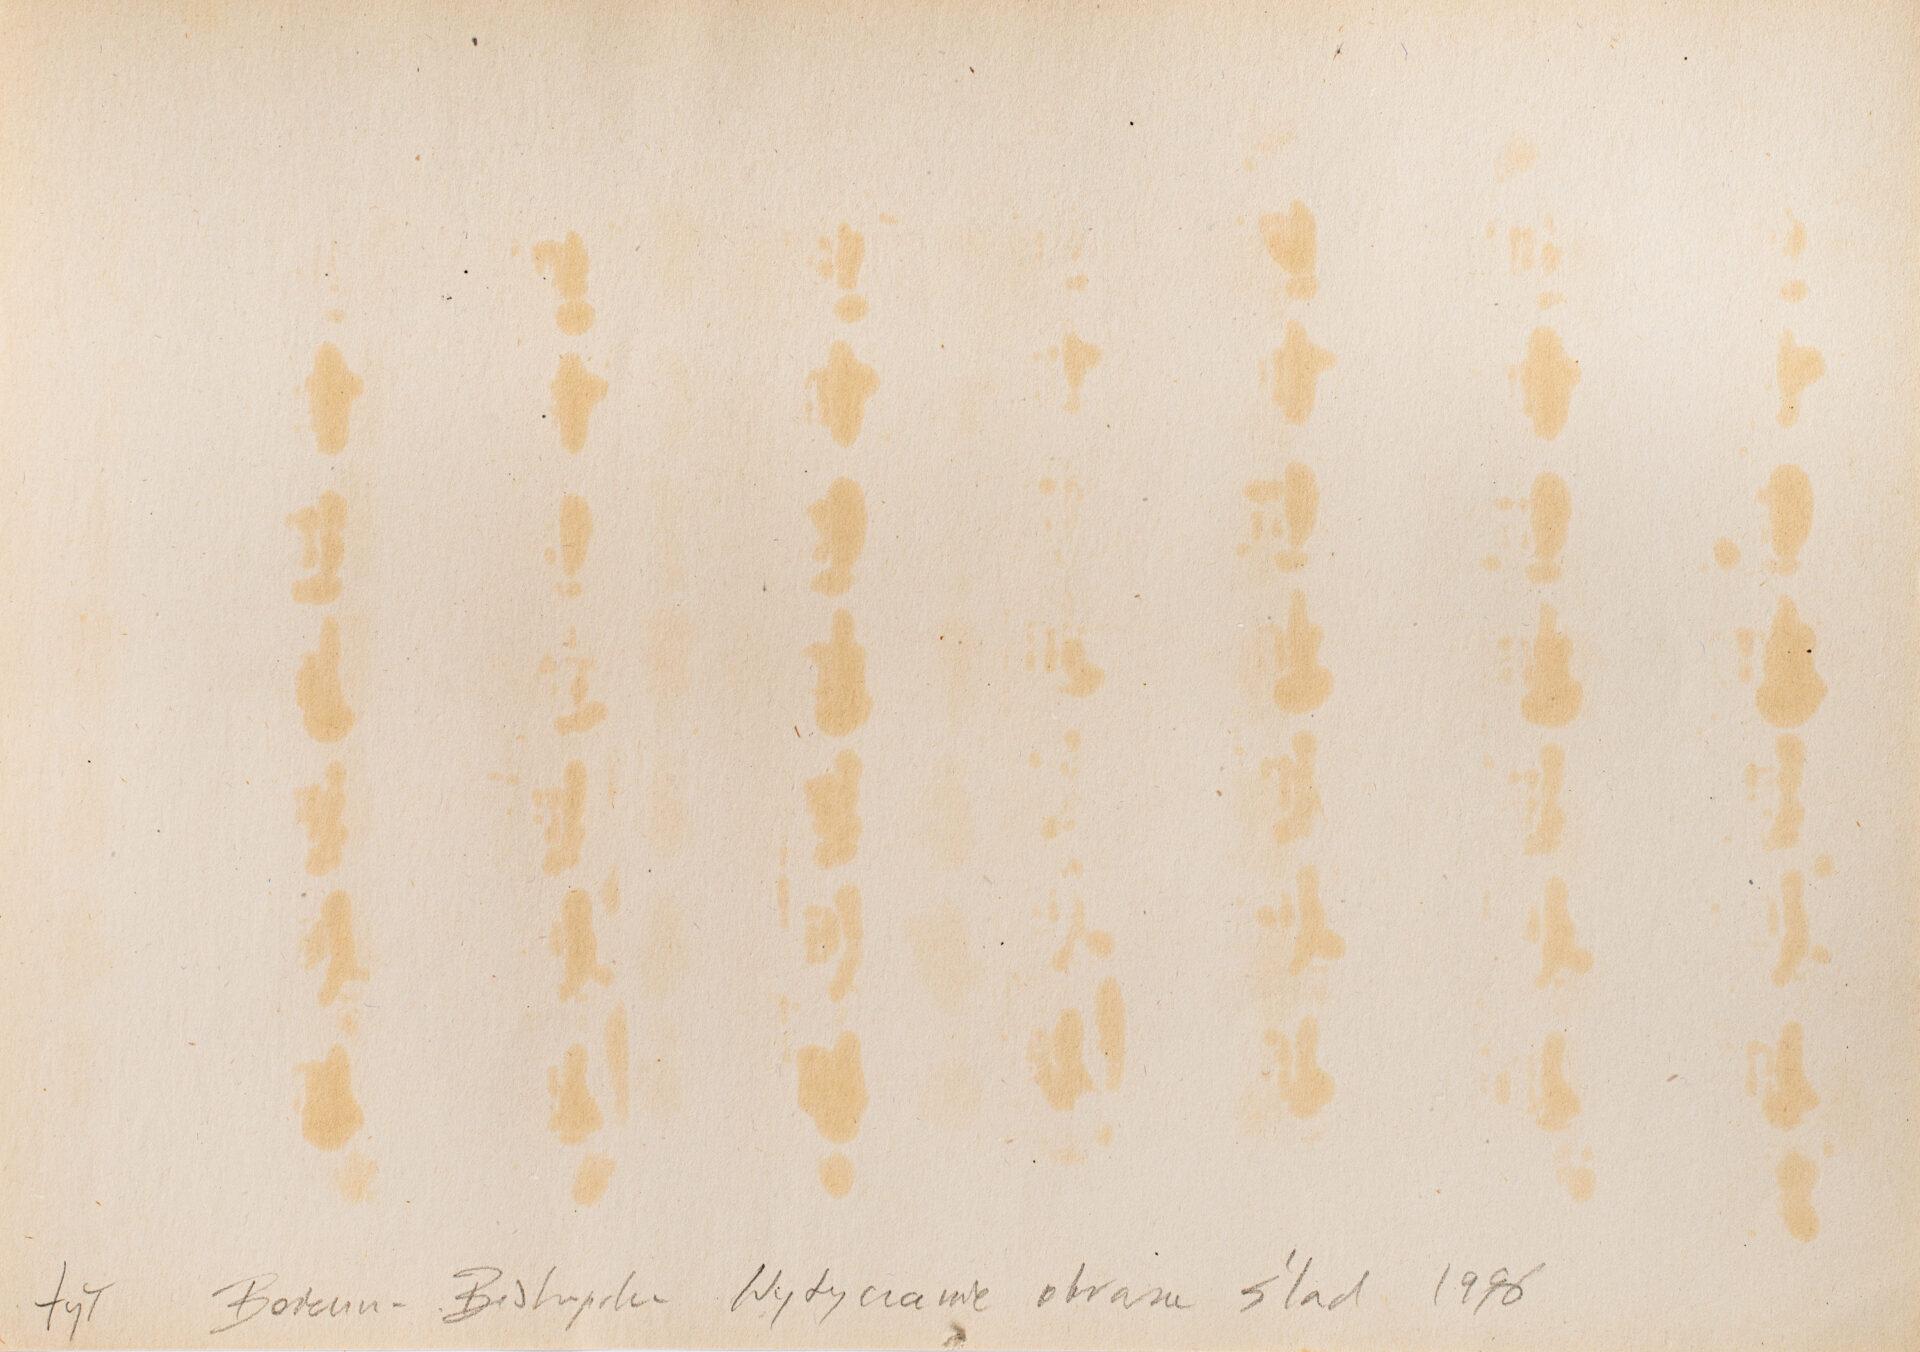 tył Bożenna Biskupska Wytyczanie obrazu ślad 1996